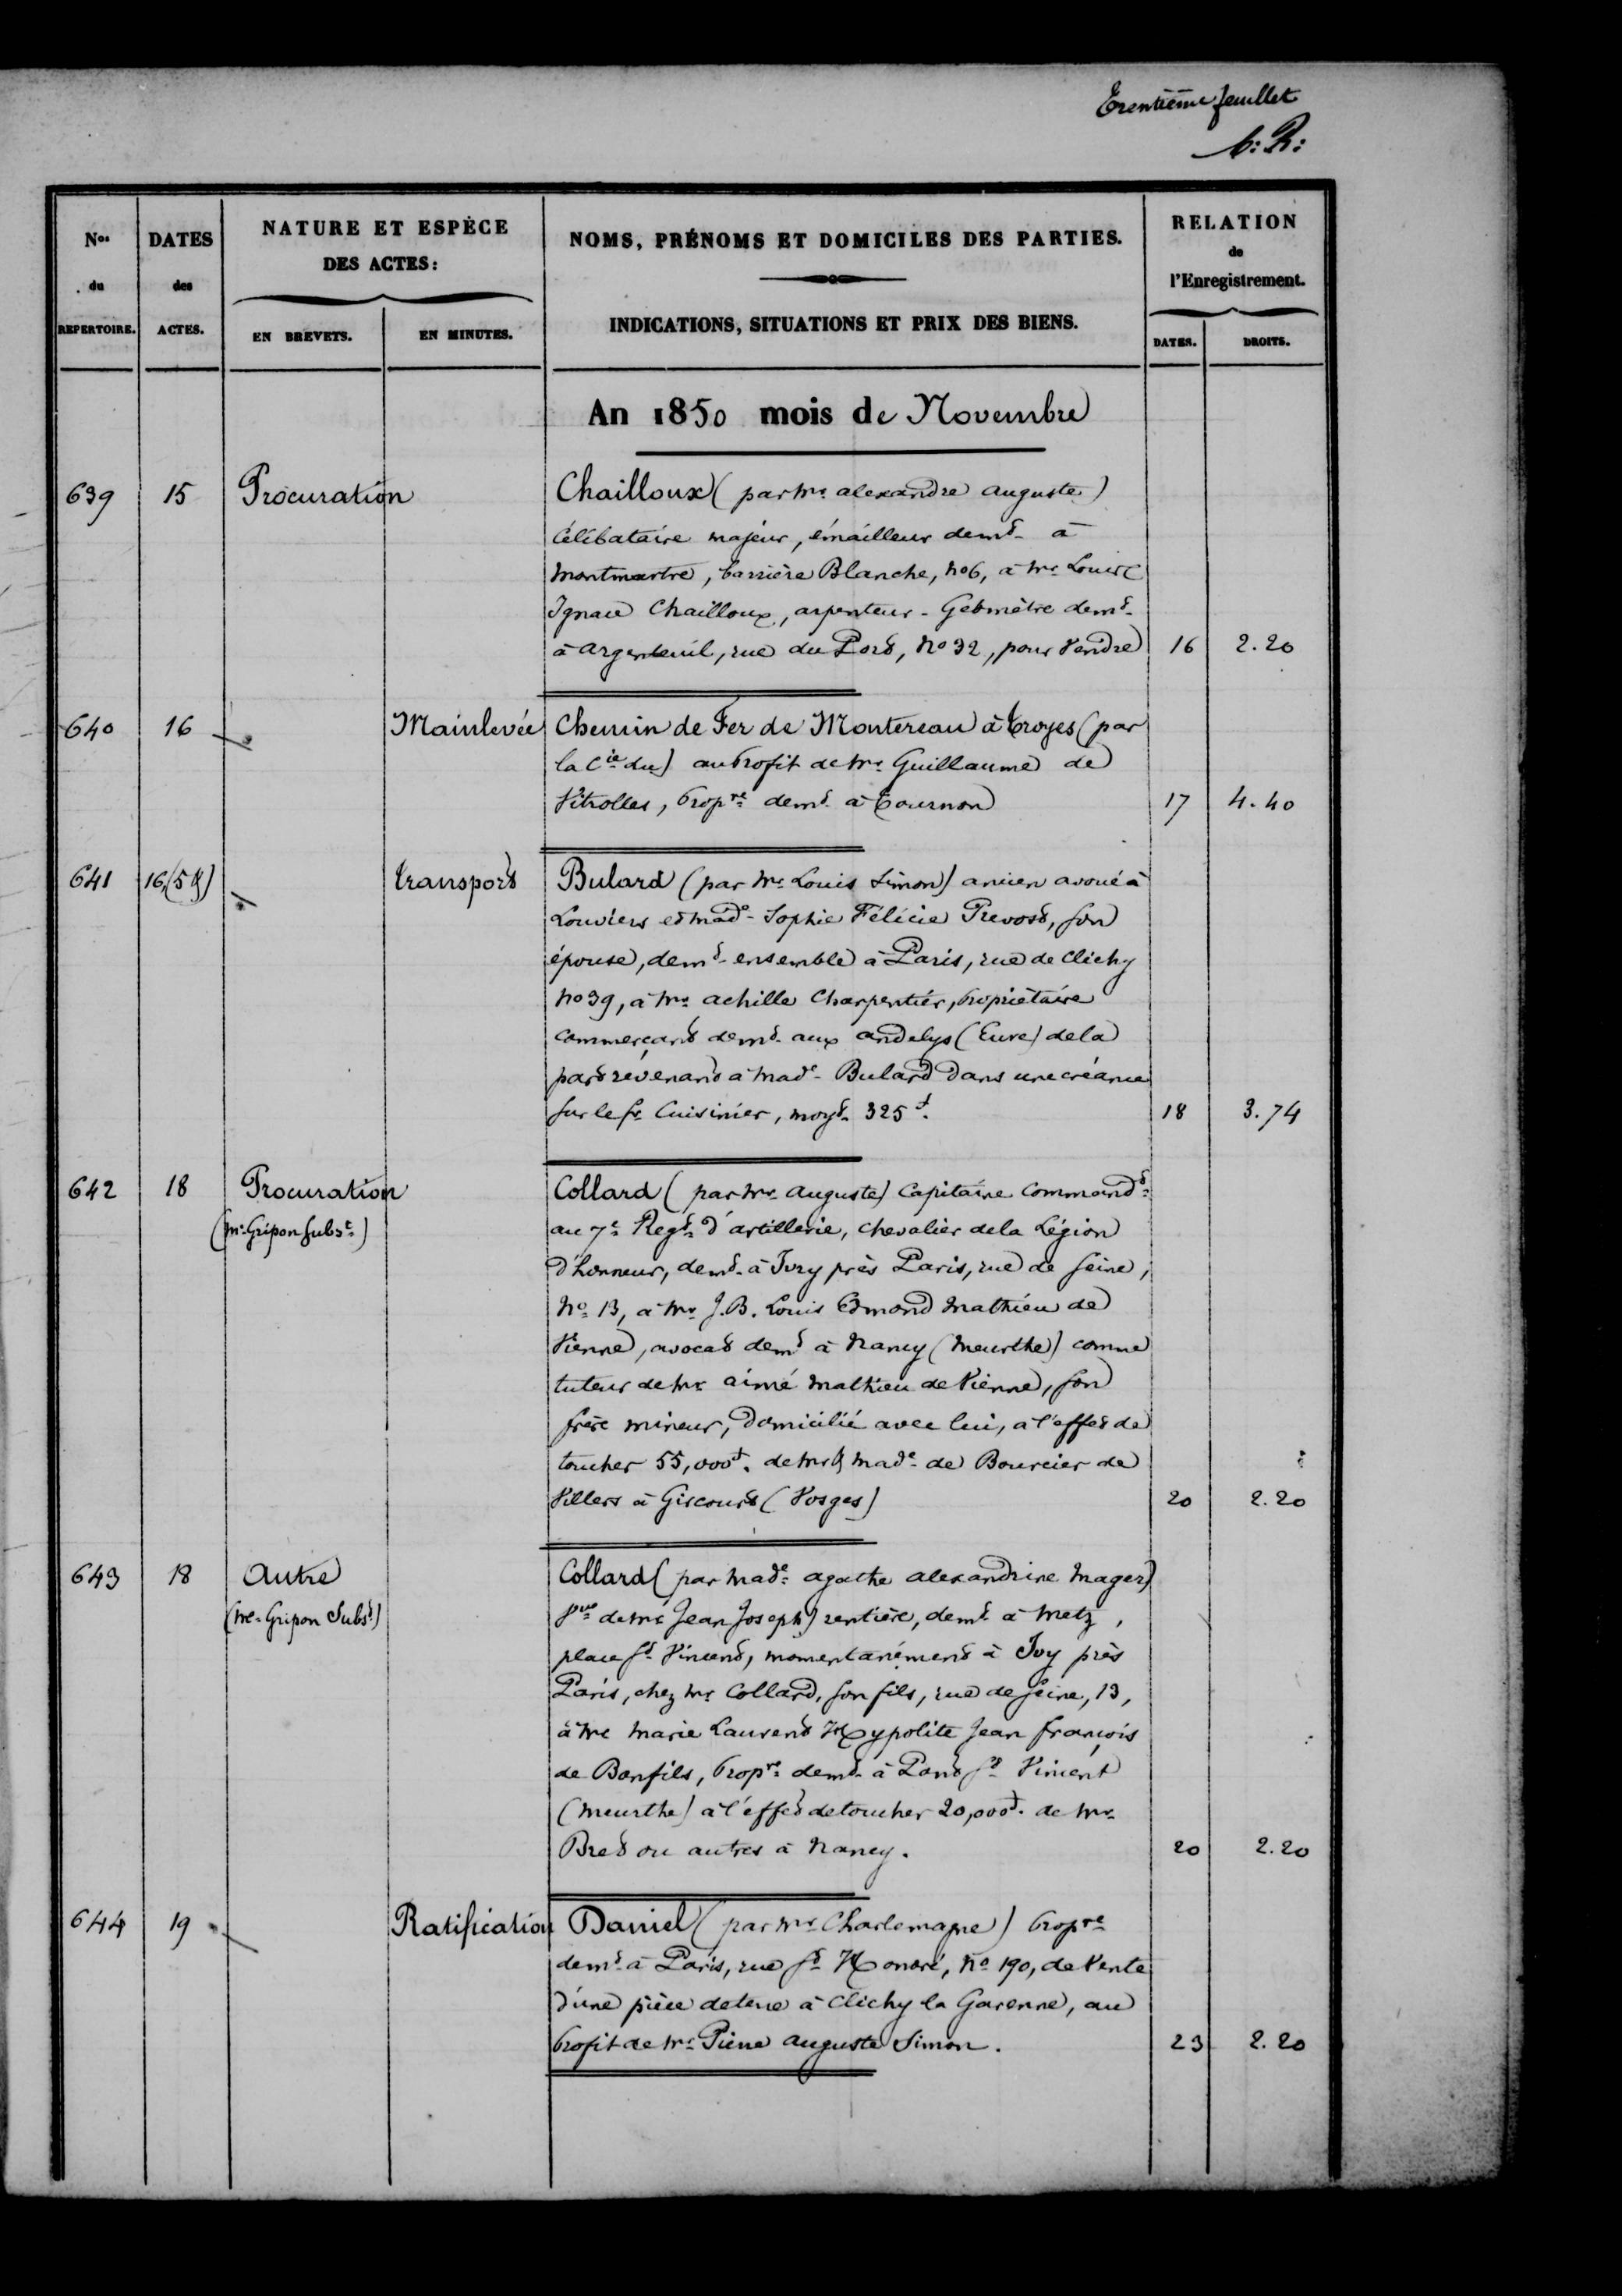 Trentième feuillet
b: R:
Nos
du
REPERTOIRE.
DATES
des
ACTES.
NATURE ET ESPÈCE
DES ACTES:
EN BREVETS.
EN MINUTES.
NOMS, PRÉNOMS ET DOMICILES DES PARTIES.
INDICATIONS, SITUATIONS ET PRIX DES BIENS.
RELATION
de
l'Enregistrement.
DATES.
DROITS.
An 1850 mois de Novembre
639 15 Procuration Chailloux (par Mr. alexandre auguste)
Célibataire majeur, émailleur demt. à
Montmartre, barrière Blanche, no 6, à Mr. Louis
Ignace Chailloux, arpenteur-Géomètre demt.
à argenteuil, rue du Port, No 32, pour Vendre 16 2.20
640 16 Mainlevée Chemin de Fer de Montereau à Troyes (par
la Cie du) au profit de Mr. Guillaume de
Vitrolles, propre. demt. à Tournon 17 4.40
641 16, (5 &) transport Bulard (par Mr. Louis Simon) ancien avoué à
Louviers et Made. Sophie Félicie Prevost, son
épouse, demt. ensemble à Paris, rue de Clichy
no 39, à Mr. achille Charpentier, propriétaire
commerçant demt. aux andelys (Eure) de la
part revenant à Made. Bulard dans une créance
sur le Sr. Cuisinier, moyt. 325 f. 18 3.74
642 18 Procuration Collard (par Mr. auguste) Capitaine Commandt.
(Me. Gripon subst.) au 7e. Regt. d'artillerie, chevalier de la Légion
d'honneur, demt. à Ivry près Paris, rue de Seine,
No. 13, à Mr. J. B. Louis Edmond Mathieu de
Vienne, avocat demt. à Nancy (Meurthe) comme
tuteur de Mr. aimé Mathieu de Vienne, son
frère mineur, domicilié avec lui, à l'effet de
toucher 55,000f. de Mr & Made. de Bourcier de
Villers à Gircourt (Vosges) 20 2.20
643 18 Autre Collard (par Made. agathe alexandrine Mager)
(Me. Gripon Subst.) Vve. de Mr. Jean Joseph) rentière, demt. à Metz,
place St. Vincent, momentanément à Ivy près
Paris, chez Mr. Collard, son fils, rue de Seine, 13,
à Mr. Marie Laurent Hypolite Jean François
de Bonfils, propre. demt. à Pont St. Vincent
(Meurthe) à l'effet de toucher 20,000f. de Mr.
Bret ou autres à Nancy. 20 2.20
644 19 Ratification Daniel (par Mr. Charlemagne) propre.
demt. à Paris, rue St. Honoré, No. 190, de Vente
d'une pièce de terre à Clichy la Garenne, au
profit de Mr. Pierre auguste Simon. 23 2.20